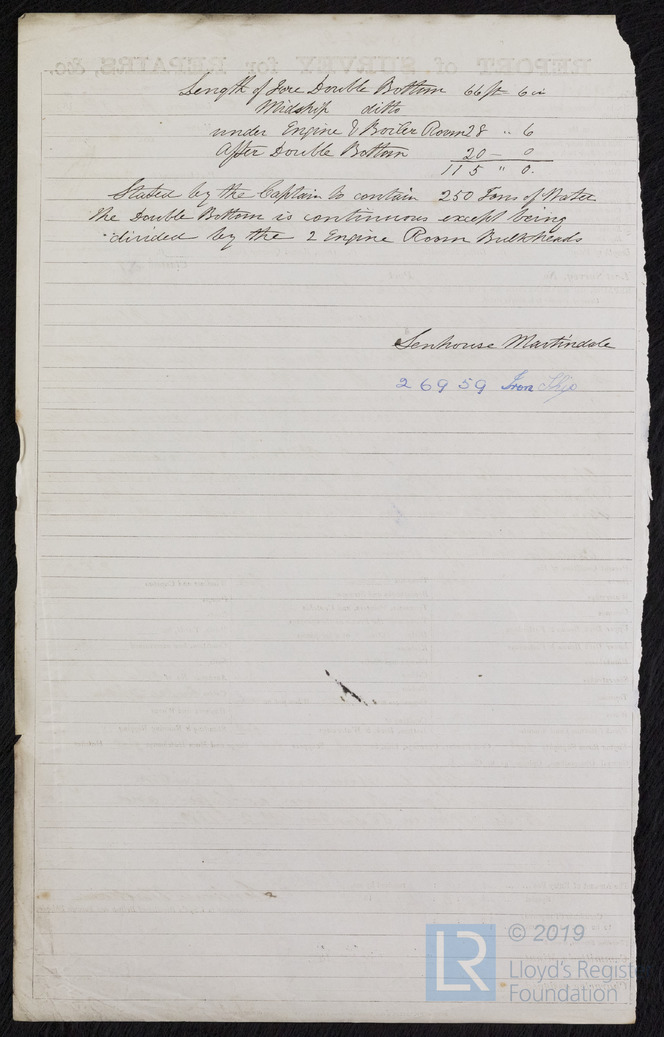 Length of Fore Double Bottom 66 ft 6 in
Midship ditto
under Engine & Boiler Room 28 " 6
After Double Bottom 20 - 0
115 " 0.
Stated by the Captain to contain 250 Tons of Water
The Double Bottom is continuous except being
divided by the 2 Engine Room Bulkheads
Senhouse Martindale
26959 Iron Ship
REPORT of SURVEY for REPAIRS, &c.
LR
© 2019
Lloyd's Regist
Foundation